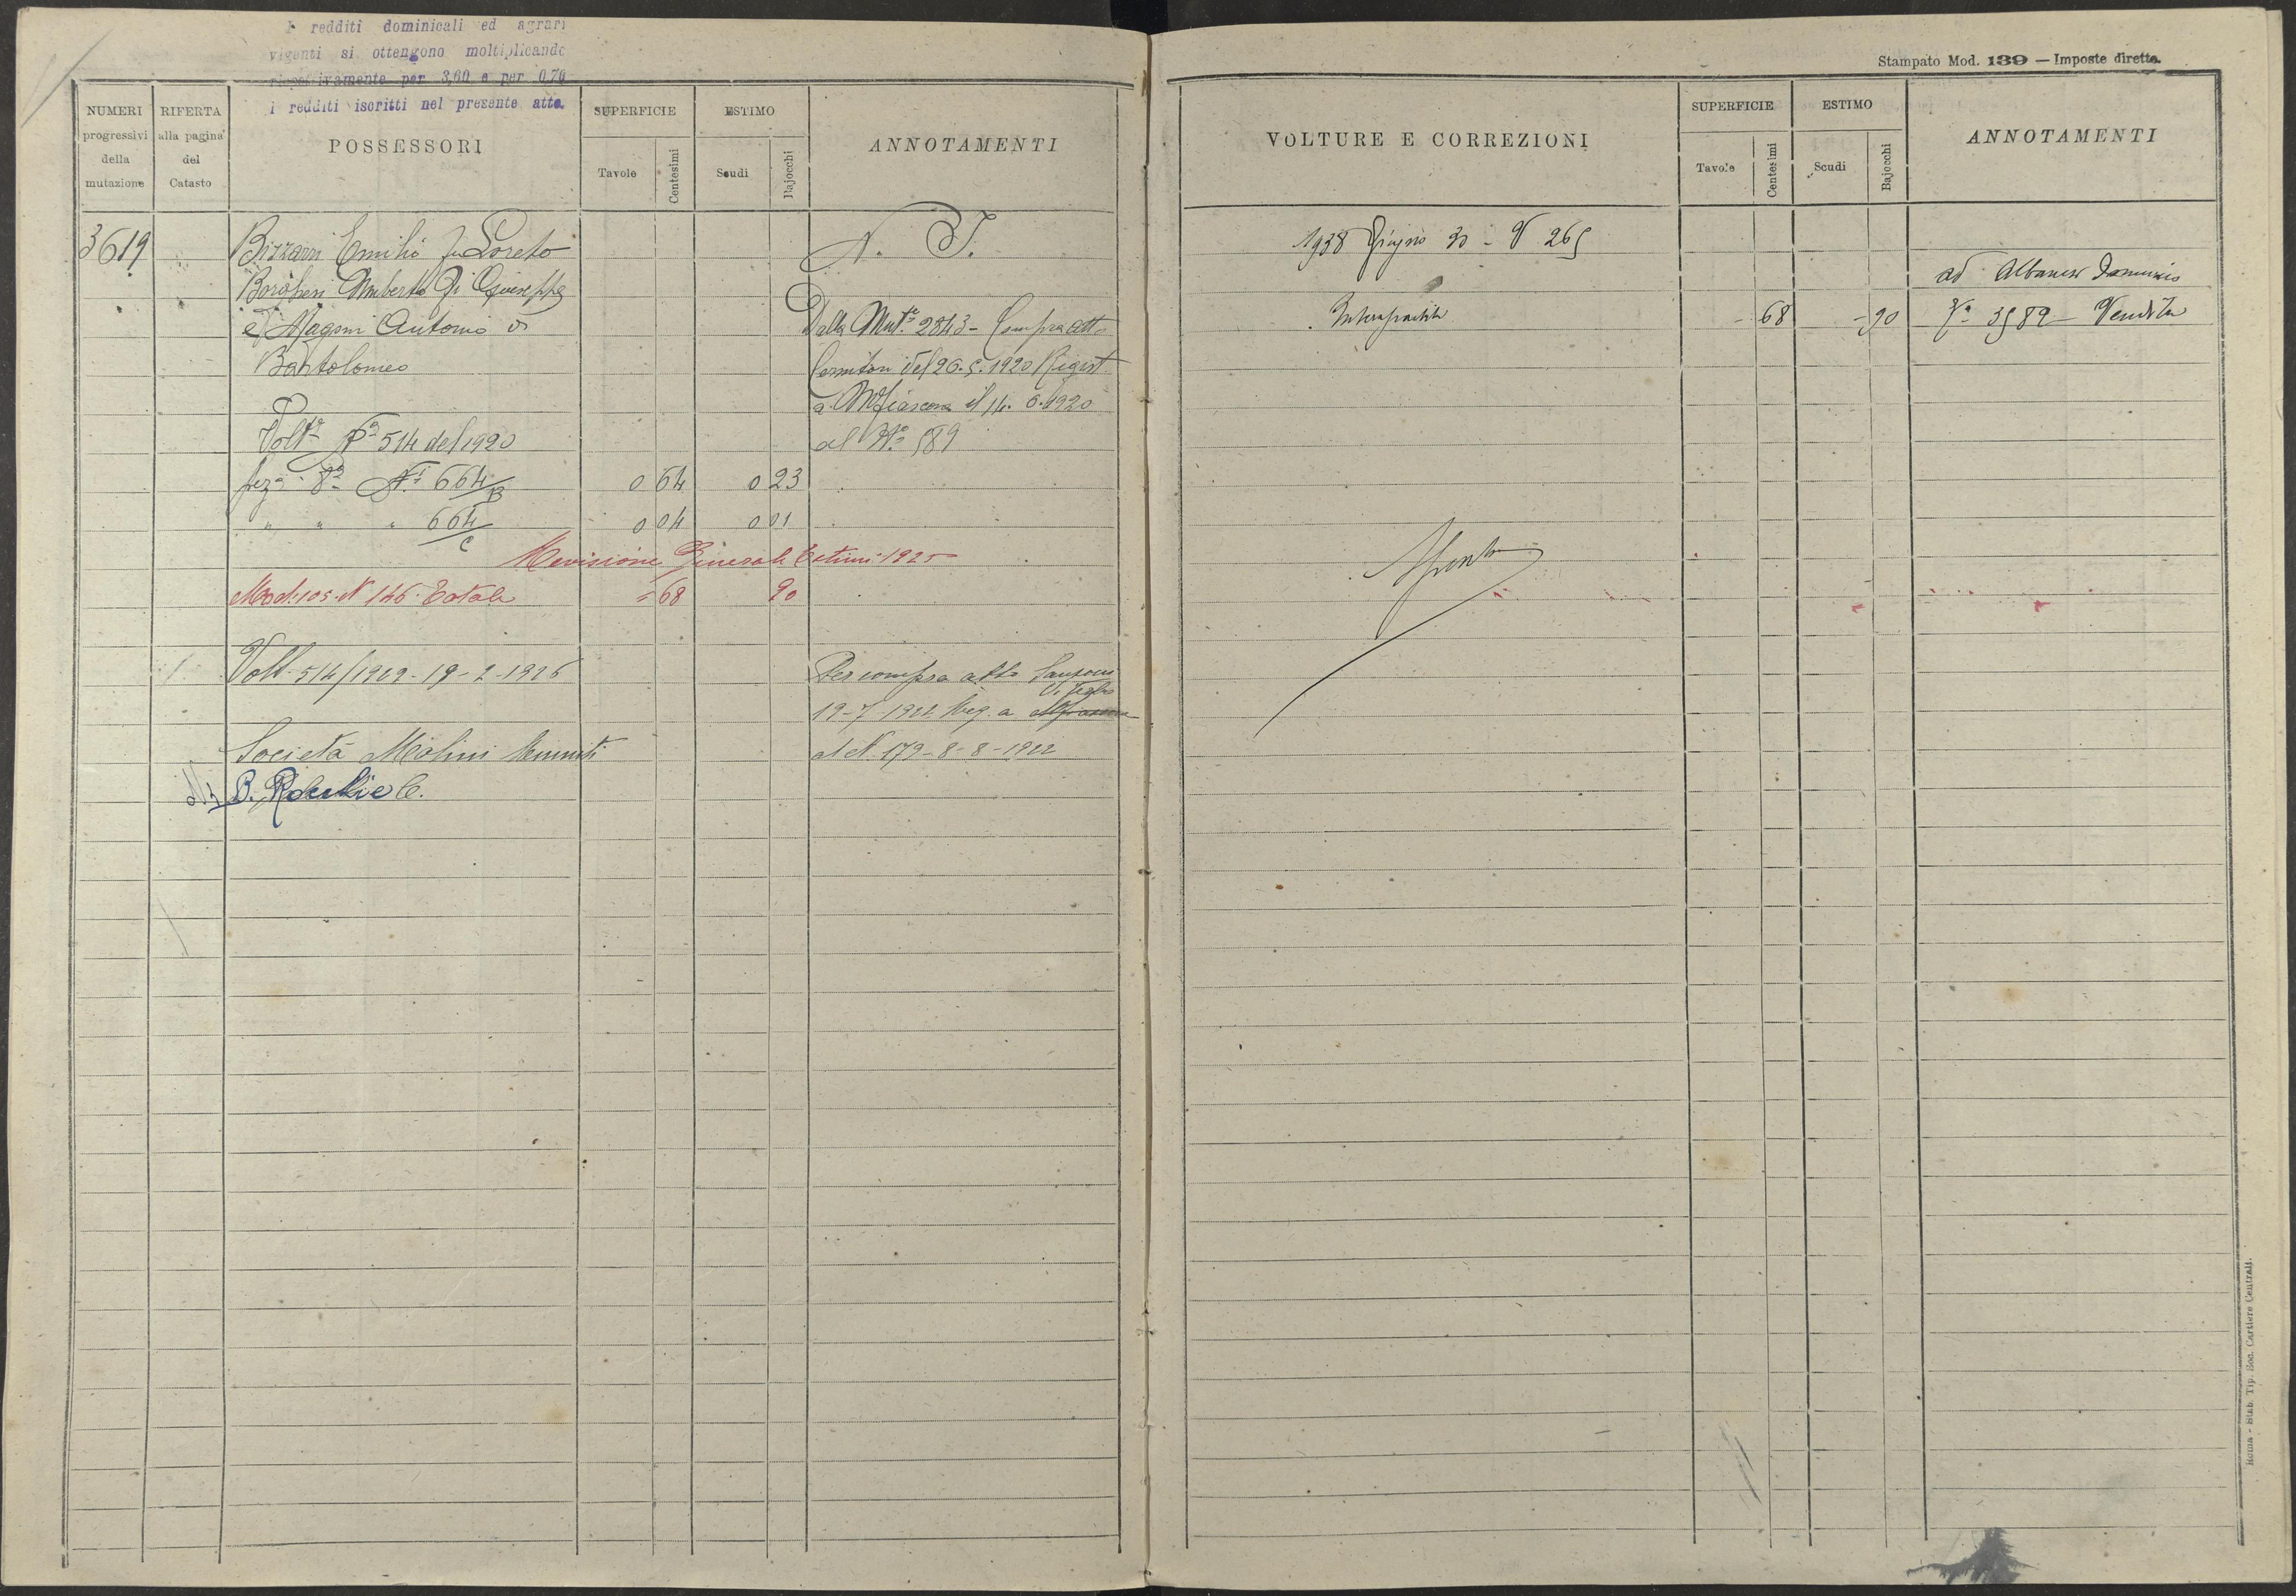 I redditi dominicali ed agrari
vigenti si ottengono moltiplicando
rispettivamente per 3,60 e per 0,70
i redditi iscritti nel presente atto.
NUMERI progressivi della mutazione
RIFERTA alla pagina del Catasto
POSSESSORI
SUPERFICIE
Tavole
Centesimi
ESTIMO
Scudi
Bajocchi
ANNOTAMENTI
3619
Bizzarri Emilio fu Loreto
Borghesi Umberto di Giuseppe
e Magoni Antonio di
Bartolomeo
N. T.
Dalla Mut.ª 2843 - Compra atto
del 26.5.1920 Regist
a Mfiascone il 14.6.1920
al Nº 589
Volt.ª Nº 514 del 1920
Sez.ª 8ª Nⁱ 664/B 0 64 0 23
" " " 664/C 0 04 0 01
Revisione Generale Estimi 1925
Mod. 105 N 146 Totale = 68 90
Volt. 514/1929 - 19-2-1926
Per compra atto
19-7-1922 Reg. a
al N. 179 - 8-8-1922
Società Molini Riuniti
B. C.
Stampato Mod. 139 — Imposte dirette.
VOLTURE E CORREZIONI
SUPERFICIE
Tavole
Centesimi
ESTIMO
Scudi
Bajocchi
ANNOTAMENTI
1938 Giugno 30 - V 265
ad Albanesi Domenico
Intera partita - 68 - 90 Vª 3589 - Vendita
Spenta
Roma - Stab. Tip. Soc. Cartiere Centrali.